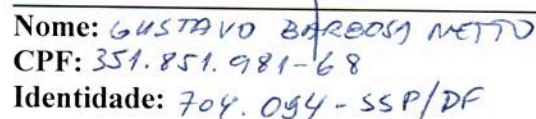 Nome: GUSTAVO BARBOSA NETTO
CPF: 351.851.981-68
Identidade: 704.094-SSP/DF